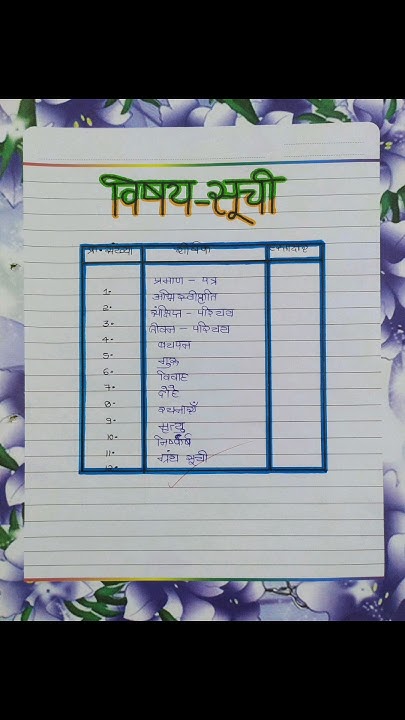 विषय-सूची
क्र. संख्या शीर्षक हस्ताक्षर
1. प्रमाण - पत्र
2. अभिस्वीकृति
3. संक्षिप्त - परिचय
4. जीवन - परिचय
5. बचपन
6. गुरु
7. विवाह
8. दोहे
9. रचनाएँ
10. मृत्यु
11. निष्कर्ष
12. ग्रंथ सूची